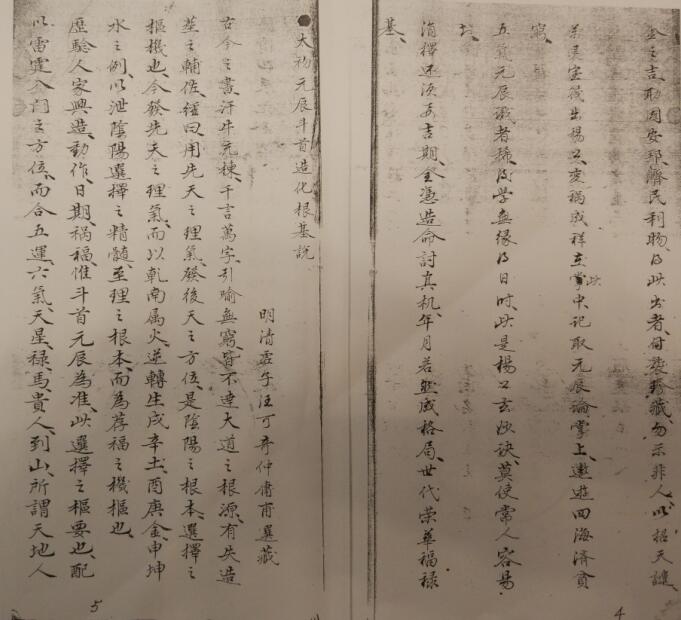 金之吉取因安邦濟民利物得此出者付袋珍藏勿示非人以招天譴
出楊公变禍成祥立掌中記取元辰論掌上遨遊四海済貧
窮
五氣元辰識者稀後学無缘得日时此是楊公玄妙诀莫使常人容易
擇还须女吉期全憑造命討真机年月若然成格局世代荣華福禄
基
4
大初元辰斗首造化根基說
明清雲子汪可奇仲甫選藏
古今之書汗牛充棟千言萬字引喻無窮皆不達大道之根源有失造
之輔佐經曰用先天之理氣發後天之方位是陰陽之根本選擇之
樞機也今發先天之理氣而以乾南属火逆轉生戌辛土酉庚金申坤
水之例以泄陰陽選擇之精髓至理之根本而為荐福之機樞也
歷驗人家興造動作日期禍福惟斗首元辰為准此選擇之樞要也配
以雷霆入門之方位而合五運六氣天星禄馬貴人到山所謂天地人
5